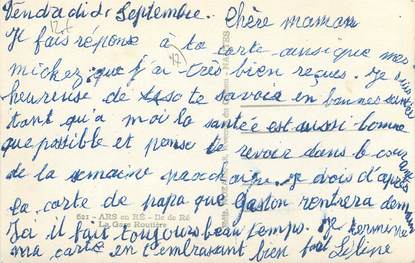 Vendredi 2 Septembre. Chère maman
Je fais réponse à ta carte ainsi que mes
michez que j'ai très bien reçues. Je suis
heureuse de te savoir en bonne santé
tant qu'a moi la santée est aussi bonne
que possible et pense te revoir dans le courant
de la semaine prochaine. je vois d'après
la carte de papa que Gaston rentrera demain
621 - ARS en RÉ - Ile de Ré
La Gare Routière
Ici il fait toujours beau temps. Je termine
ma carte en t'embrassant bien fort